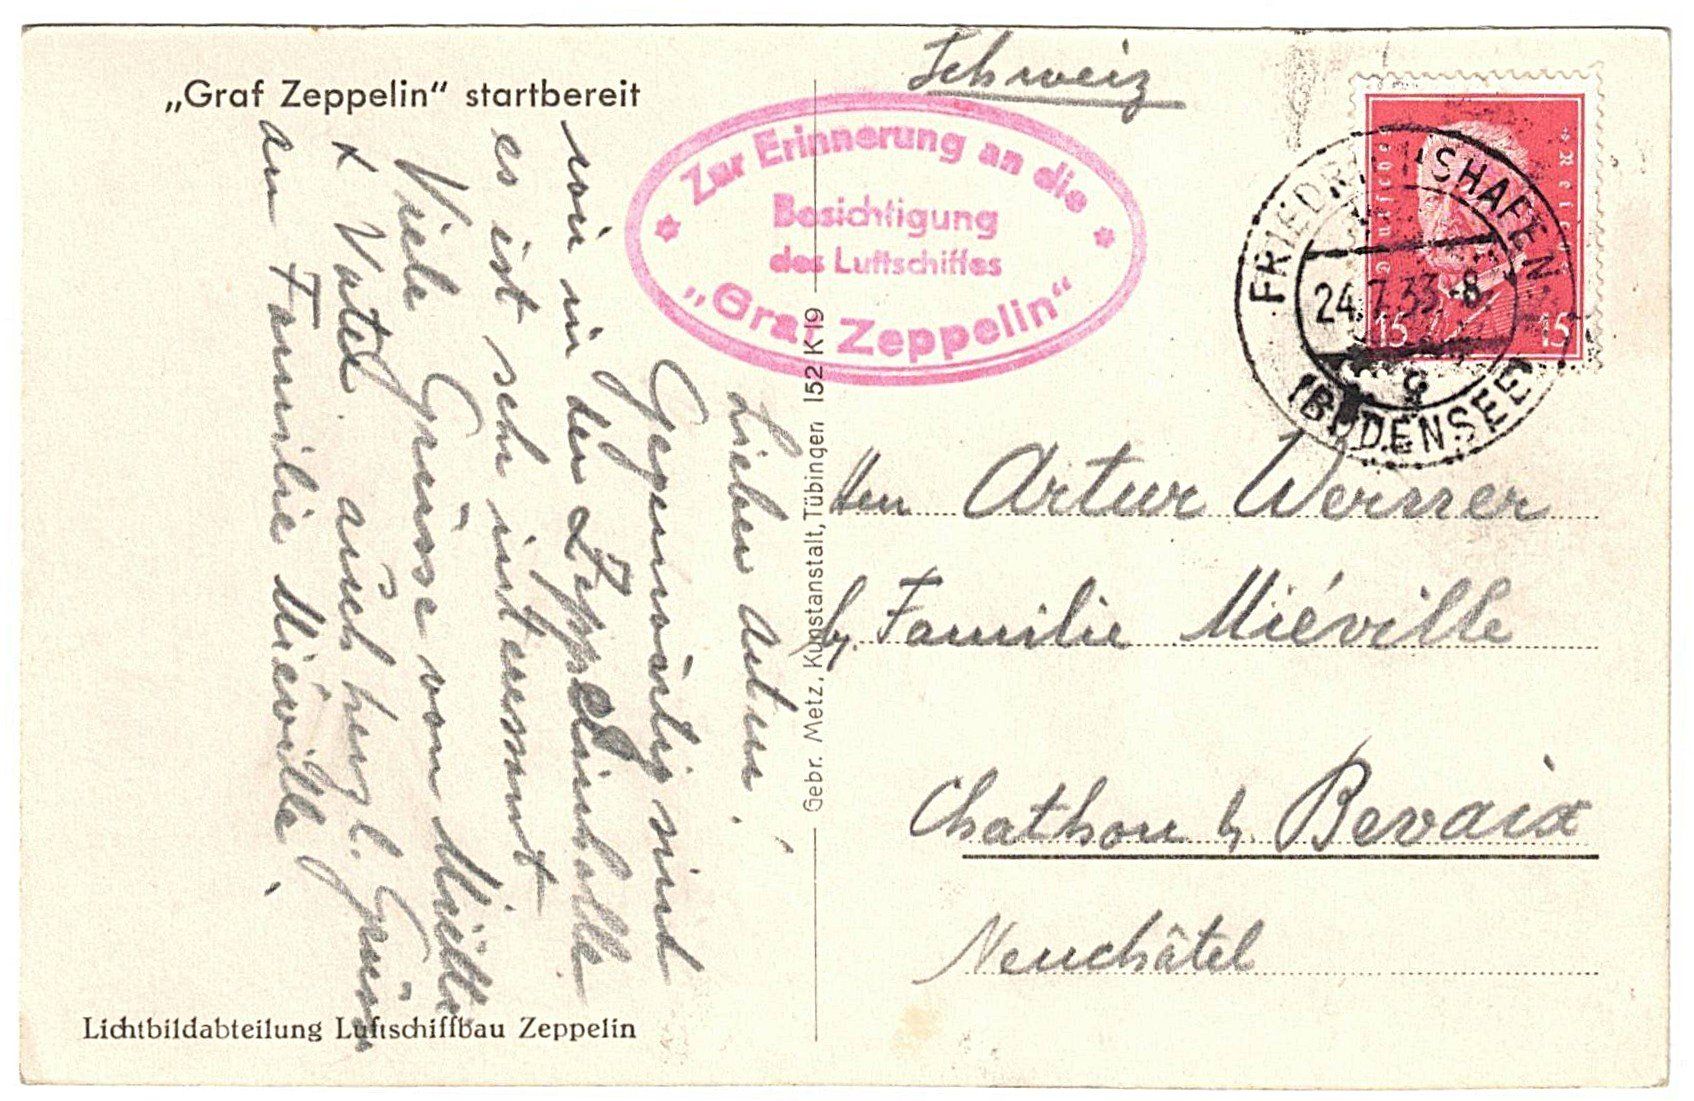 „Graf Zeppelin“ startbereit
Schweiz
Zur Erinnerung an die
Besichtigung
des Luftschiffes
„Graf Zeppelin“
Deutsches Reich
15 15
FRIEDRICHSHAFEN
24.7.33.-8
g
(BODENSEE)
Lieber Artur!
Gegenwärtig sind
wir in der Zeppelinhalle
es ist sehr interessant
Viele Grüsse von Mutter
x Vater. auch herzl. Grüsse
an Familie Miéville.
Gebr. Metz, Kunstanstalt, Tübingen 152 K 19
Herrn Artur Werner
b. Familie Miéville
Chathon b. Bevaix
Neuchâtel
Lichtbildabteilung Luftschiffbau Zeppelin